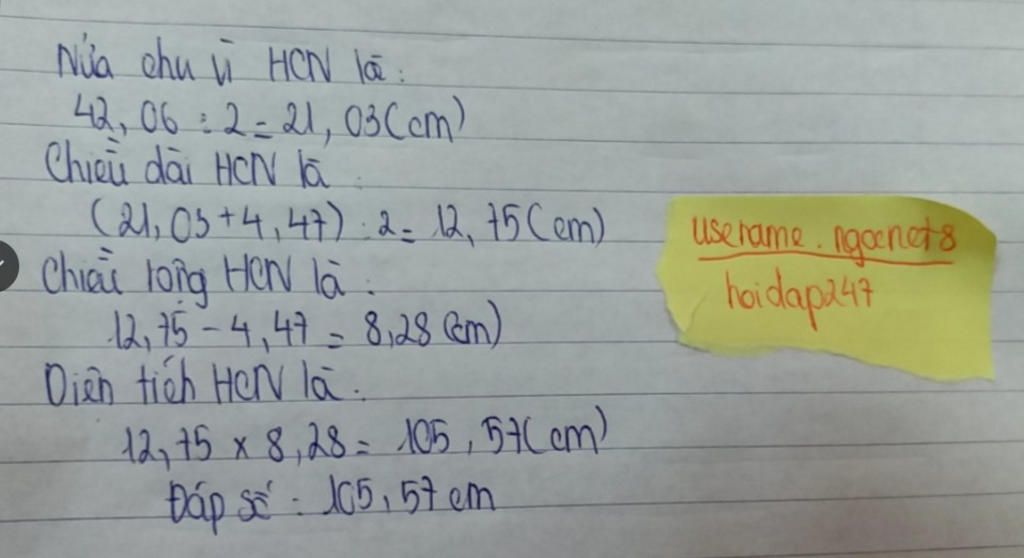 Nửa chu vi HCN là:
42,06 : 2 = 21,03(cm)
Chiều dài HCN là:
(21,03+4,47) : 2 = 12,75(cm)
Chiều rộng HCN là:
12,75 - 4,47 = 8,28 (cm)
Diện tích HCN là:
12,75 x 8,28 = 105,57(cm)
Đáp số: 105,57 cm
userame. ngocnet8
hoidap247